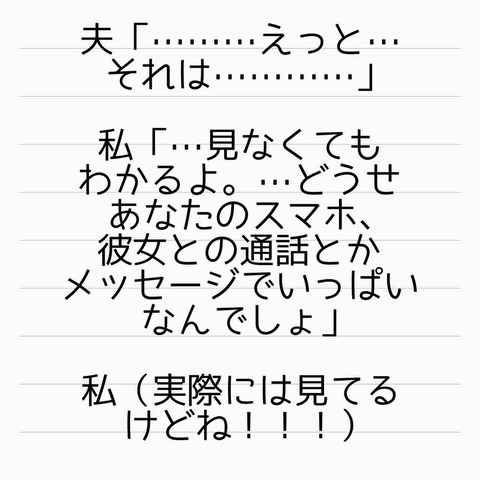 夫「………えっと…
それは…………」
私「…見なくても
わかるよ。…どうせ
あなたのスマホ、
彼女との通話とか
メッセージでいっぱい
なんでしょ」
私（実際には見てる
けどね！！！）